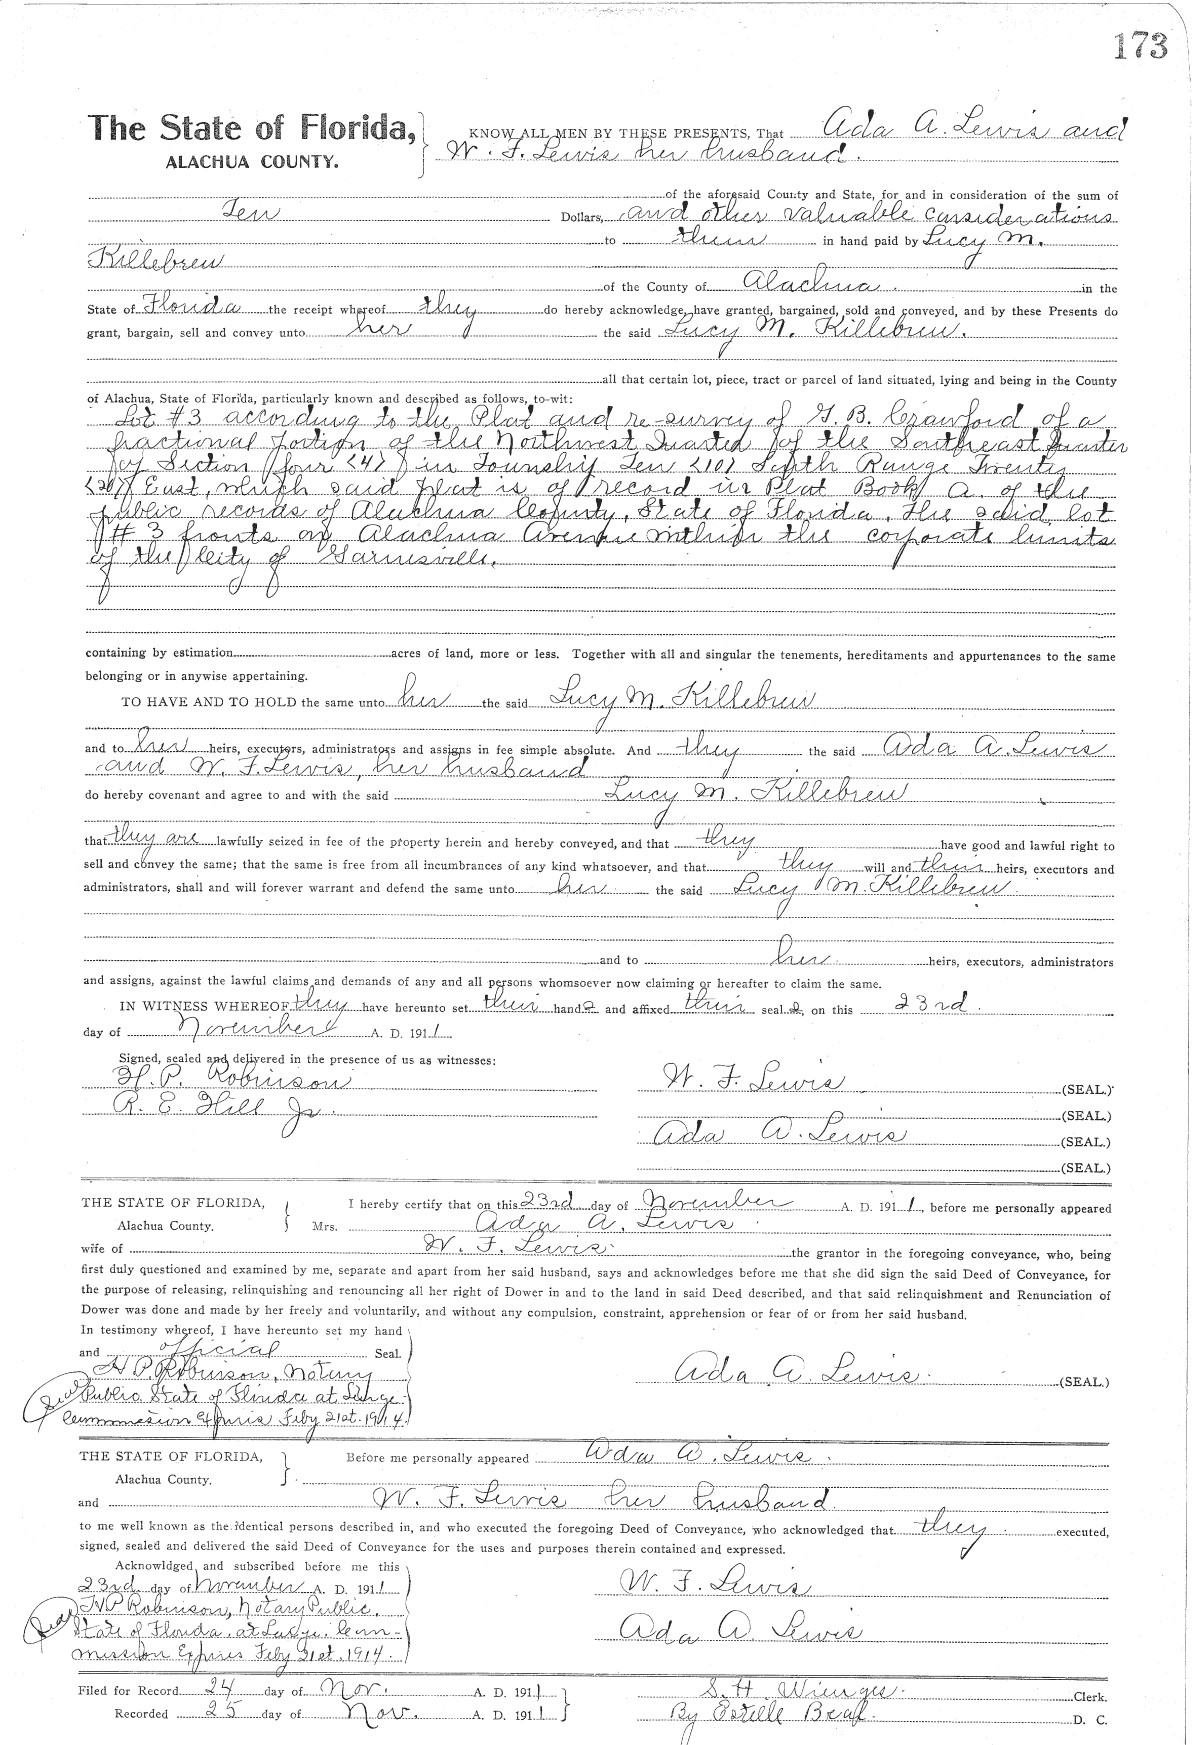 173
The State of Florida,
ALACHUA COUNTY.
KNOW ALL MEN BY THESE PRESENTS, That Ada A. Lewis and
W. F. Lewis her husband.
of the aforesaid County and State, for and in consideration of the sum of
Ten Dollars, and other valuable considerations
to them in hand paid by Lucy M.
Killebrew
of the County of Alachua. in the
State of Florida the receipt whereof they do hereby acknowledge, have granted, bargained, sold and conveyed, and by these Presents do
grant, bargain, sell and convey unto her the said Lucy M. Killebrew.
all that certain lot, piece, tract or parcel of land situated, lying and being in the County
of Alachua, State of Florida, particularly known and described as follows, to-wit:
Lot #3 according to the Plat and re-survey of G. B. Crawford, of a
fractional portion of the Northwest Quarter of the Southeast Quarter
of Section four (4) in Township Ten (10) South Range Twenty
(20) East, which said plat is of record in Plat Book A. of the
public records of Alachua County, State of Florida. The said lot
# 3 fronts on Alachua Avenue within the corporate limits
of the City of Gainesville.
containing by estimation acres of land, more or less. Together with all and singular the tenements, hereditaments and appurtenances to the same
belonging or in anywise appertaining.
TO HAVE AND TO HOLD the same unto her the said Lucy M. Killebrew
and to her heirs, executors, administrators and assigns in fee simple absolute. And they the said Ada A. Lewis
and W. F. Lewis, her husband
do hereby covenant and agree to and with the said Lucy M. Killebrew
that they are lawfully seized in fee of the property herein and hereby conveyed, and that they have good and lawful right to
sell and convey the same; that the same is free from all incumbrances of any kind whatsoever, and that they will and their heirs, executors and
administrators, shall and will forever warrant and defend the same unto her the said Lucy M. Killebrew
and to her heirs, executors, administrators
and assigns, against the lawful claims and demands of any and all persons whomsoever now claiming or hereafter to claim the same.
IN WITNESS WHEREOF they have hereunto set their hands and affixed their seals, on this 23rd.
day of November A. D. 1911.
Signed, sealed and delivered in the presence of us as witnesses:
H. P. Robinson
R. E. Hill Jr.
W. F. Lewis (SEAL.)
(SEAL.)
Ada A. Lewis (SEAL.)
(SEAL.)
THE STATE OF FLORIDA,
Alachua County.
I hereby certify that on this 23rd day of November A. D. 1911, before me personally appeared
Mrs. Ada A. Lewis
wife of W. F. Lewis the grantor in the foregoing conveyance, who, being
first duly questioned and examined by me, separate and apart from her said husband, says and acknowledges before me that she did sign the said Deed of Conveyance, for
the purpose of releasing, relinquishing and renouncing all her right of Dower in and to the land in said Deed described, and that said relinquishment and Renunciation of
Dower was done and made by her freely and voluntarily, and without any compulsion, constraint, apprehension or fear of or from her said husband.
In testimony whereof, I have hereunto set my hand
and official Seal.
H P. Robinson, Notary
Seal Public State of Florida at Large.
Commission Expires Feby 21st. 1914.
Ada A. Lewis. (SEAL.)
THE STATE OF FLORIDA,
Alachua County.
Before me personally appeared Ada A. Lewis.
and W. F. Lewis her husband
to me well known as the identical persons described in, and who executed the foregoing Deed of Conveyance, who acknowledged that they executed,
signed, sealed and delivered the said Deed of Conveyance for the uses and purposes therein contained and expressed.
Acknowldged and subscribed before me this
23rd. day of November A. D. 1911
H P Robinson, Notary Public.
Seal State of Florida. at Large. Com-
mission Expires Feby 21st. 1914.
W. F. Lewis
Ada A. Lewis
Filed for Record 24 day of Nov. A. D. 1911
Recorded 25 day of Nov. A. D. 1911
S. H. Wienges. Clerk.
By Estelle Beal. D. C.